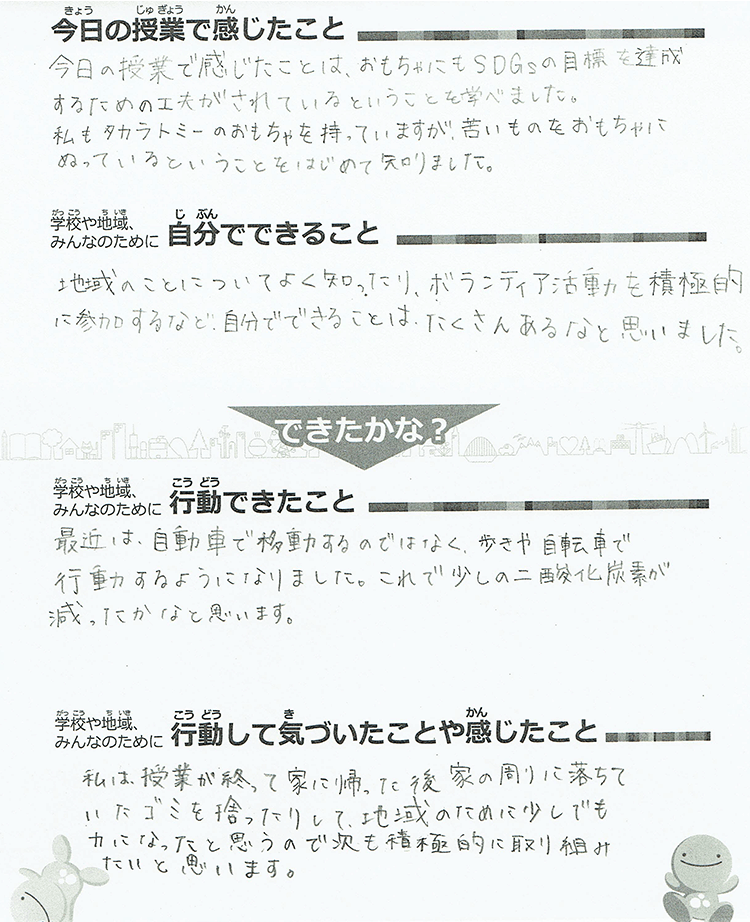 きょう じゅぎょう かん
今日の授業で感じたこと
今日の授業で感じたことは、おもちゃにもSDGsの目標を達成
するための工夫がされているということを学べました。
私もタカラトミーのおもちゃを持っていますが、苦いものをおもちゃに
ぬっているということをはじめて知りました。
がっこう ちいき じぶん
学校や地域、
みんなのために 自分でできること
地域のことについてよく知ったり、ボランティア活動を積極的
に参加するなど、自分でできることは、たくさんあるなと思いました。
できたかな?
がっこう ちいき こうどう
学校や地域、
みんなのために 行動できたこと
最近は、自動車で移動するのではなく、歩きや自転車で
行動するようになりました。これで少しの二酸化炭素が
減ったかなと思います。
がっこう ちいき こうどう き かん
学校や地域、
みんなのために 行動して気づいたことや感じたこと
私は、授業が終って家に帰った後家の周りに落ちて
いたゴミを捨ったりして、地域のために少しでも
力になったと思うので次も積極的に取り組み
たいと思います。